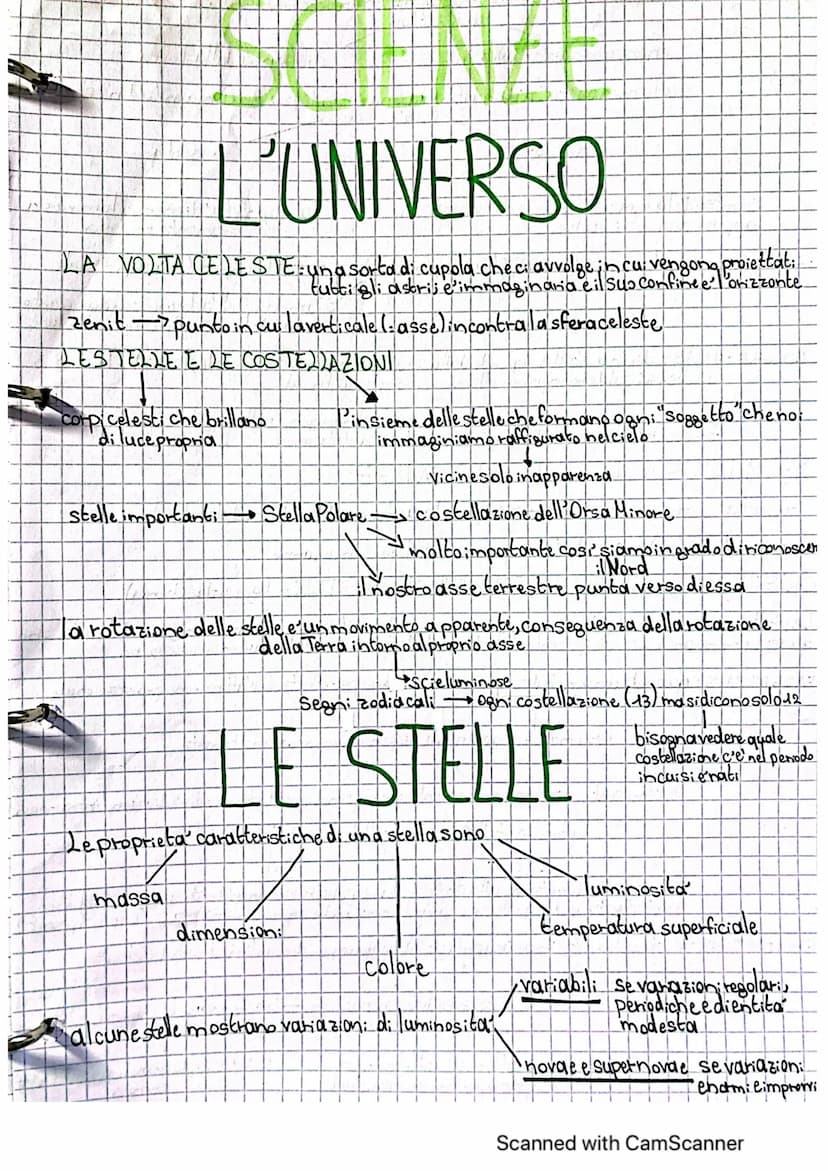 SCIENZE
L'UNIVERSO
LA VOLTA CELESTE: una sorta di cupola che ci avvolge, in cui vengono proiettati
tutti gli astri; e' immaginaria e il suo confine e' l'orizzonte
zenit → punto in cui la verticale (-asse) incontra la sfera celeste
LE STELLE E LE COSTELLAZIONI
corpi celesti che brillano
di luce propria
l'insieme delle stelle che formano ogni "soggetto" che noi
immaginiamo raffigurato nel cielo
vicine solo in apparenza
stelle importanti → Stella Polare → costellazione dell'Orsa Minore
molto importante cosi' siamo in grado di riconoscer
il Nord
il nostro asse terrestre punta verso di essa
la rotazione delle stelle e' un movimento apparente, conseguenza della rotazione
della Terra intorno al proprio asse
scie luminose
segni zodiacali → ogni costellazione (13) ma si dicono solo 12
bisogna vedere quale
costellazione c'e' nel periodo
in cui si e' nati
LE STELLE
Le proprieta' caratteristiche di una stella sono
massa
dimensioni
colore
temperatura superficiale
luminosita'
alcune stelle mostrano variazioni di luminosita'
variabili se variazioni regolari,
periodiche e di entita'
modesta
novae e supernovae se variazioni
enormi e improvvi
Scanned with CamScanner